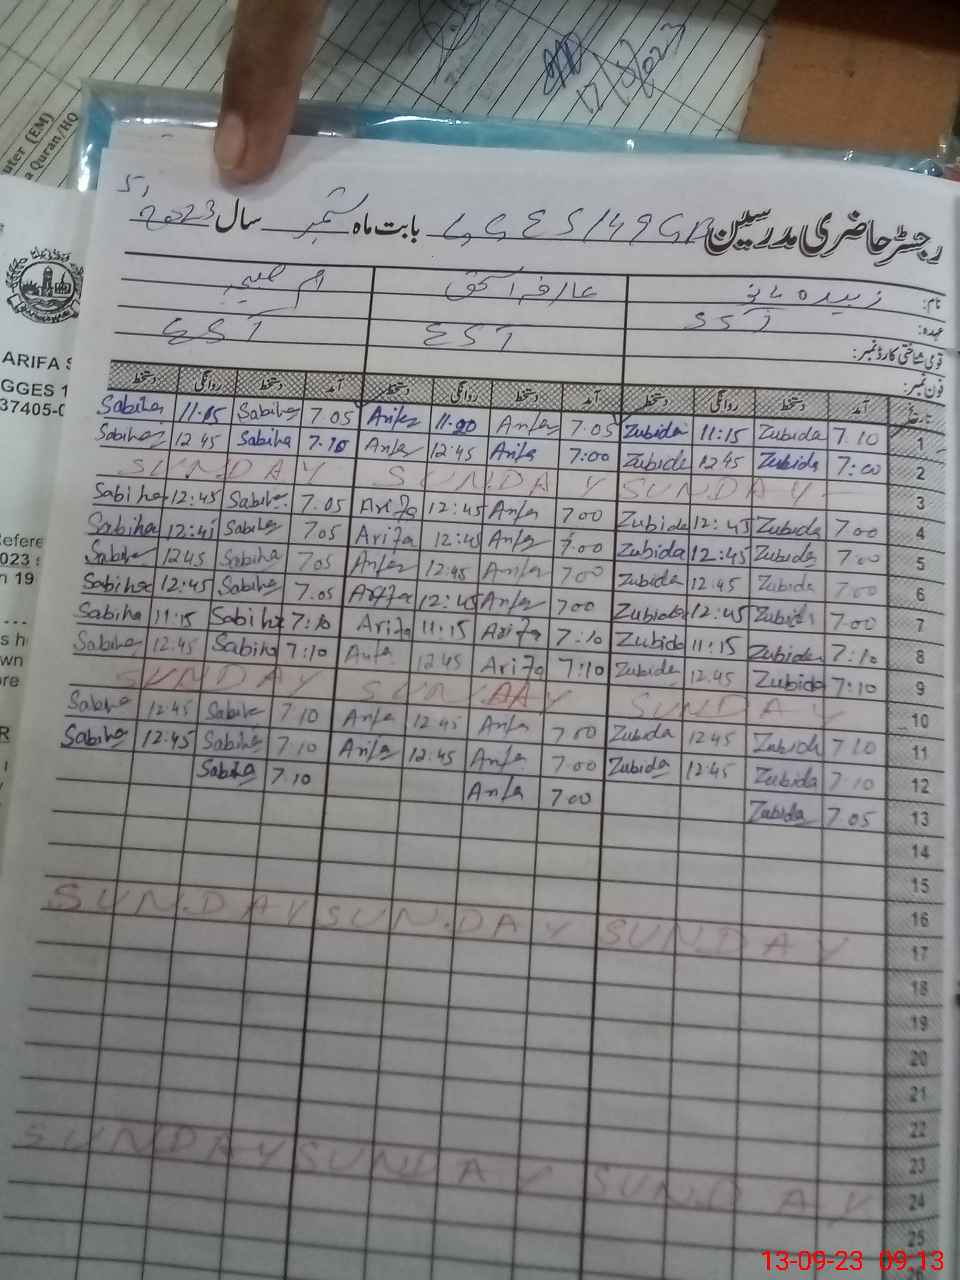 12/8/2023
uter (EM)
a Quran/HQ
رجسٹر حاضری مدرسین GGES/49GB بابت ماہ ستمبر سال 2023
نام: زبیدہ بانو
عہدہ: SST EST EST
قومی شناختی کارڈ نمبر:
فون نمبر:
ARIFA S
GGES 1
37405-0
تاریخ آمد دستخط روانگی دستخط آمد دستخط روانگی دستخط آمد دستخط روانگی دستخط
Sabiha 11:15 Sabiha 7.05 Arifa 11:00 Arifa 7.05 Zubida 11:15 Zubida 7.10 1
Sabiha 12 45 Sabiha 7.10 Arifa 12:45 Arifa 7:00 Zubida 12 45 Zubida 7:00 2
SUNDAY SUNDAY SUNDAY 3
Sabiha 12:45 Sabiha 7.05 Arifa 12:45 Arifa 700 Zubida 12:45 Zubida 7.00 4
Sabiha 12:45 Sabiha 705 Arifa 12:45 Arifa 7:00 Zubida 12:45 Zubida 7.00 5
Sabiha 1245 Sabiha 705 Arifa 12:45 Arifa 700 Zubida 12:45 Zubida 7:00 6
Sabiha 12:45 Sabiha 7.05 Arifa 12:45 Arifa 700 Zubida 12:45 Zubida 7:00 7
Sabiha 11:15 Sabiha 7:10 Arifa 11:15 Arifa 7:10 Zubida 11:15 Zubida 7:10 8
Sabiha 12:45 Sabiha 7:10 Arifa 12 45 Arifa 7:10 Zubida 12.45 Zubida 7:10 9
SUNDAY SUNDAY SUNDAY 10
Sabiha 12.45 Sabiha 7.10 Arifa 12:45 Arifa 700 Zubida 12 45 Zubida 7.10 11
Sabiha 12.45 Sabiha 7.10 Arifa 12:45 Arifa 7.00 Zubida 12.45 Zubida 7.10 12
Sabiha 7.10 Arifa 700 Zubida 7.05 13
14
15
16
SUNDAY SUNDAY SUNDAY 17
18
19
20
21
22
23
SUNDAY SUNDAY SUNDAY 24
25
13-09-23 09:13